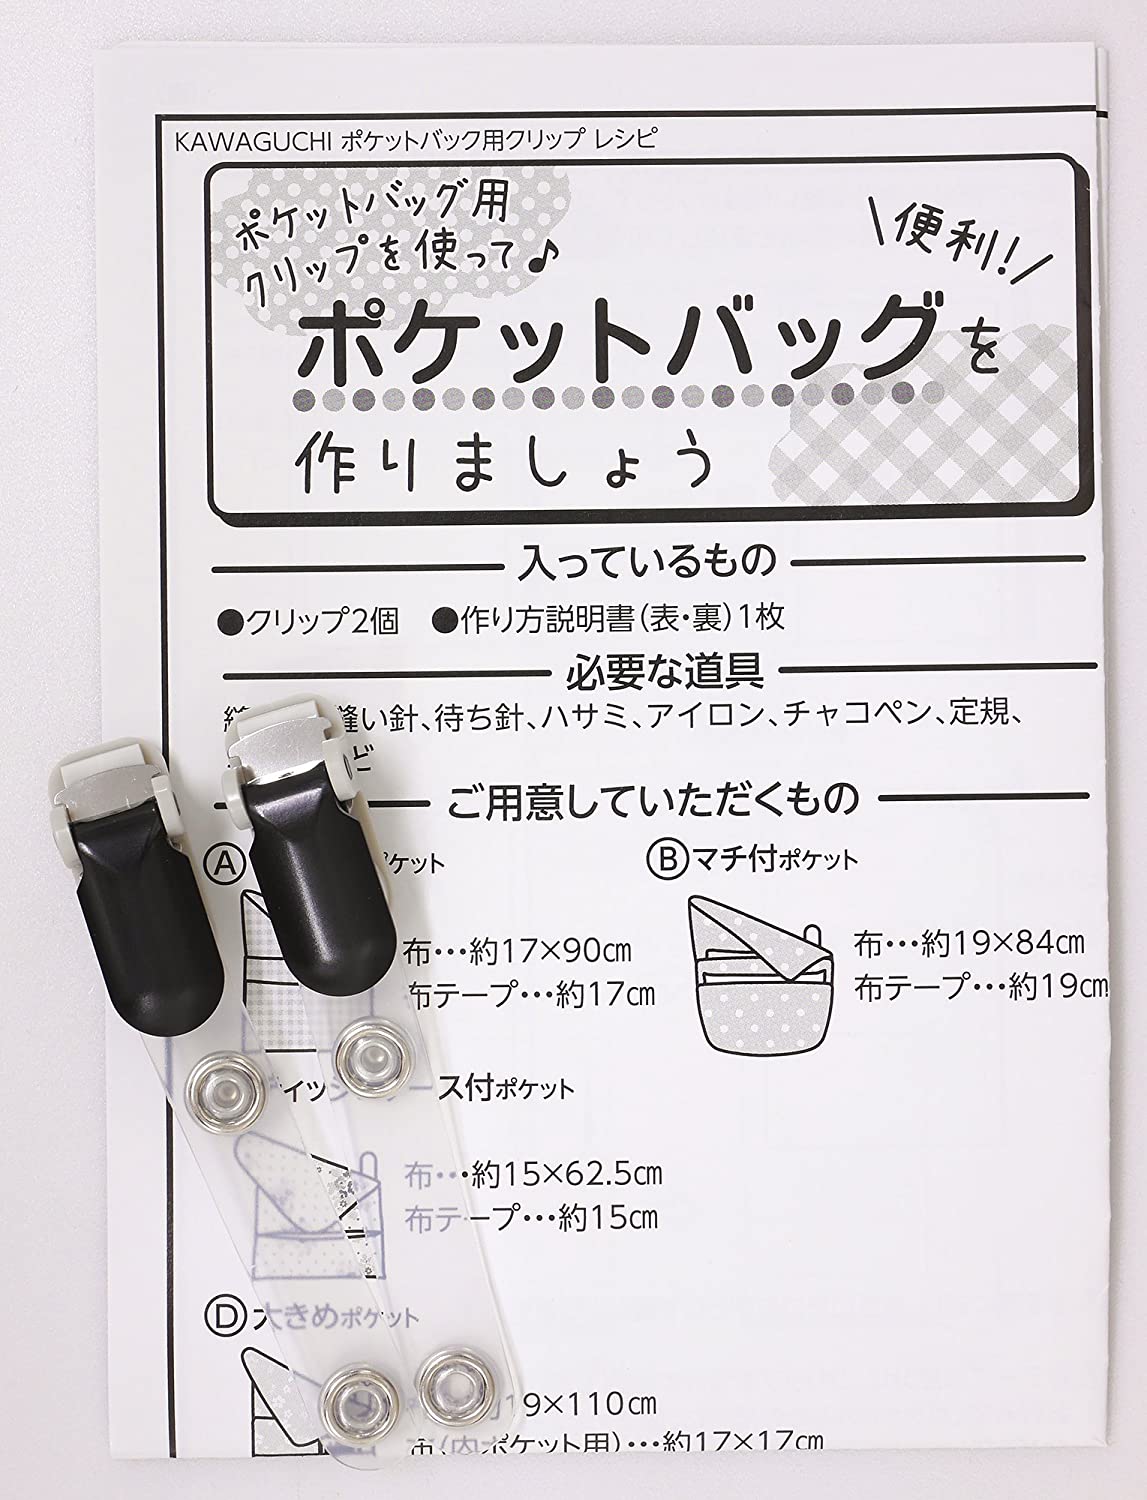 KAWAGUCHI ポケットバック用クリップ レシピ
ポケットバッグ用
クリップを使って♪
便利!
ポケットバッグを
作りましょう
入っているもの
●クリップ2個 ●作り方説明書(表・裏)1枚
必要な道具
縫い針、待ち針、ハサミ、アイロン、チャコペン、定規、
ど
ご用意していただくもの
Ⓐ ポケット
Ⓑマチ付ポケット
布…約17×90cm
布テープ…約17cm
布…約19×84cm
布テープ…約19cm
ス付ポケット
布…約15×62.5cm
布テープ…約15cm
Ⓓ大きめポケット
19×110cm
布(内ポケット用)…約17×17cm